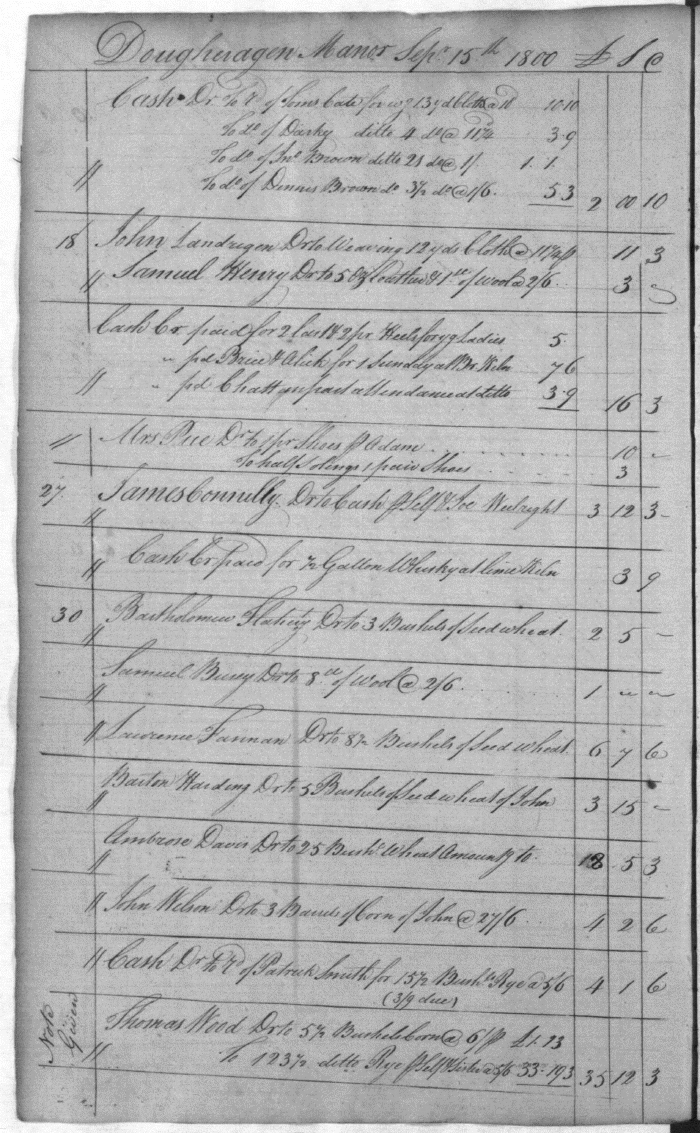 Dougheragen Manor Sepr. 15th 1800 £ S D
Cash Dr. To Rd. of Cate for wg 13 yd Cloth @ 10 10 10
To do. of Darky ditto 4 do @ 11¼ 3 9
To do. of Jno. Brown ditto 21 do @ 1/ 1. 1.
// To do. of Dennis Brown do. 3½ do @ 1/6. 5 3 2 00 10
18 John Landragen Dr to Weaving 12 yds Cloth @ 11¼ 11 3
// Samuel Henry Dr to 5 leather & 1 lb of Wool @ 2/6. 3 -
Cash Cr. paid for 2 & 2 pr Heels for yg Ladies 5
" pd Brice & Alick for 1 Sunday at Br. Kiln 7 6
// " pd Chatt attendance at ditto 3.9 16 3
// Mrs Pue Dr to 1 pr Shoes p Adam 10 -
To half Soling 1 pair Shoes 3
27. James Connelly. Dr to Cash p Self & Joe Weelright 3 12 3 -
//
// Cash Cr paid for ½ Gallon Whisky at lime Kiln 3 9
30 Bartholomew Dr to 3 Bushels of Seed wheat. 2 5 -
//
Samuel Burey Dr to 8 lb of Wool @ 2/6. 1 " "
//
// Lawrence Fannan Dr to 8½ Bushels of Seed wheat 6 7 6
Barton Harding Dr to 5 Bushels of Seed wheat of John 3 15 -
//
Ambrose Davis Dr to 25 Bush. Wheat Amountg to. 18 5 3
//
// John Welson Dr to 3 Barrels of Corn of John @ 27/6 4 2 6
// Cash Dr to Rd. of Patrick Smith for 15½ Bush. Rye @ 5/6 4 1 6
(3/9 due)
Note Given
Thomas Wood Dr to 5½ Bushels Corn @ 6/ £ 1. 13
// To 123½ ditto Rye p Self & Sister @ 5/6 33 - 19 3 35 12 3